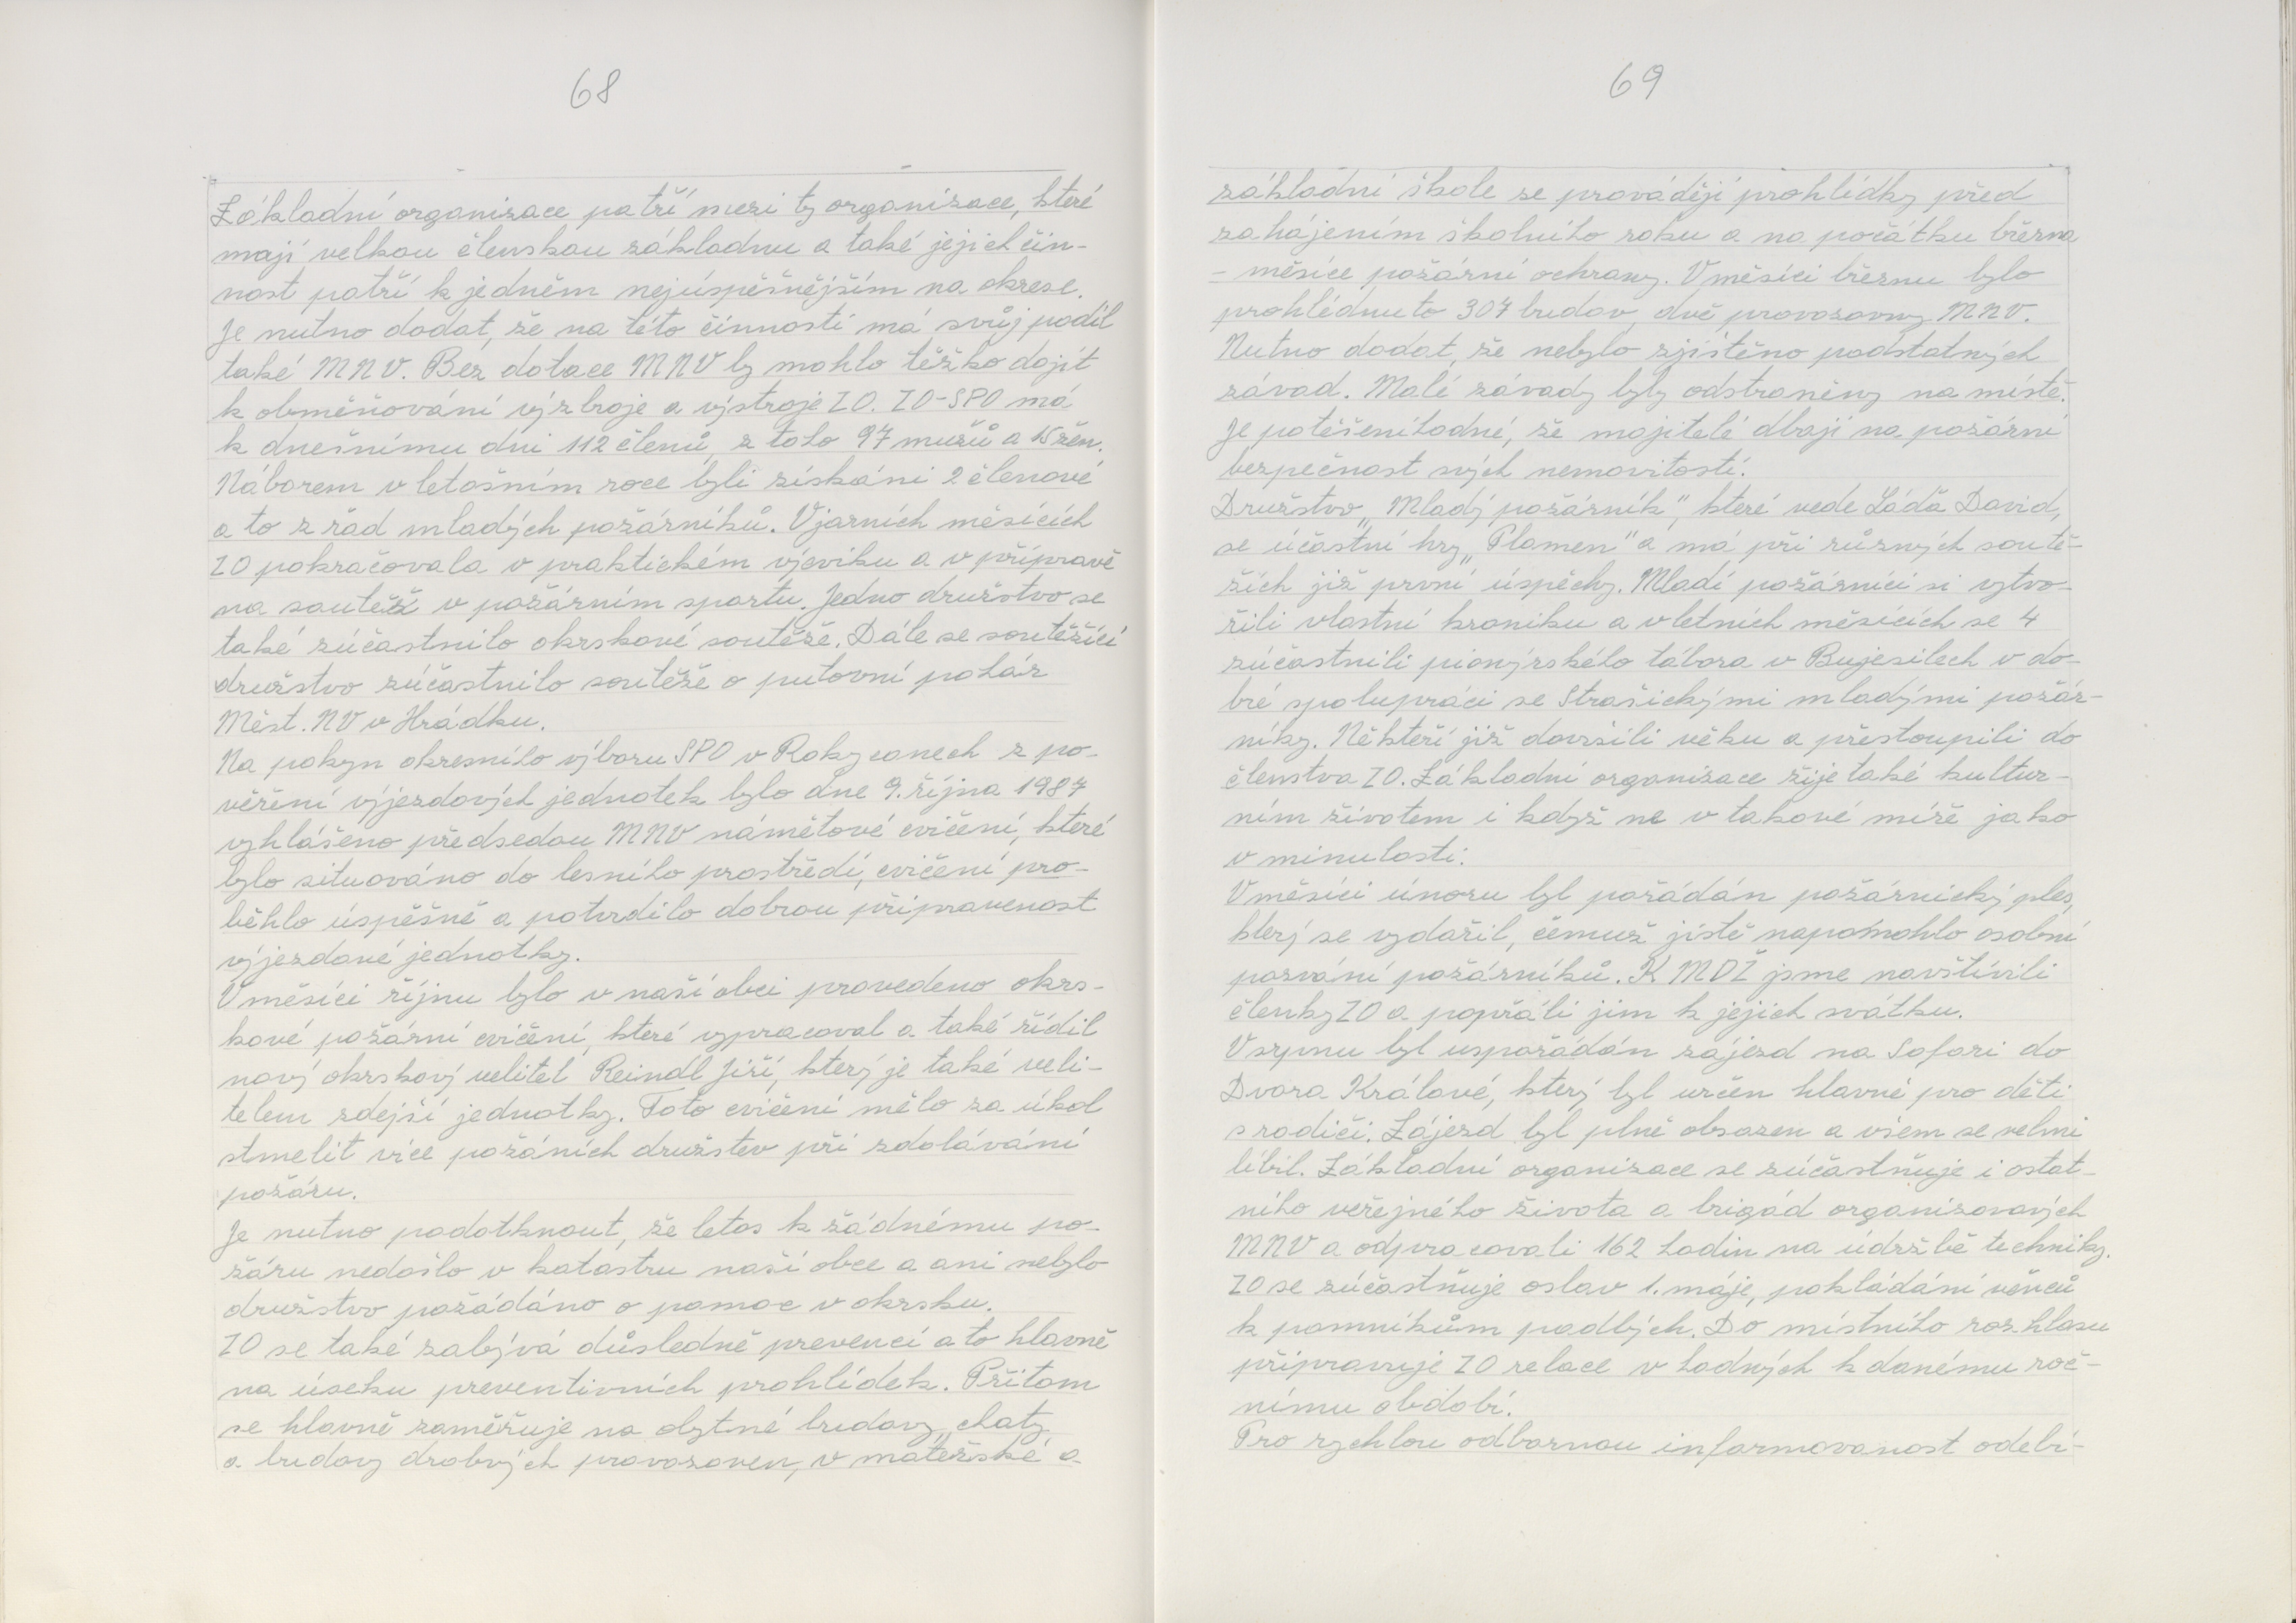 68
Základní organizace patří mezi ty organizace, které
mají velkou členskou základnu a také jejich čin-
nost patří k jedněm nejúspěšnějším na okrese.
Je nutno dodat, že na této činnosti má svůj podíl
také MNV. Bez dotace MNV by mohlo těžko dojít
k obměňování výzbroje a výstroje ZO. ZO-SPO má
k dnešnímu dni 112 členů, z toho 97 mužů a 15 žen.
Náborem v letošním roce byli získáni 2 členové
a to z řad mladých požárníků. V jarních měsících
ZO pokračovala v praktickém výcviku a v přípravě
na soutěž v požárním sportu. Jedno družstvo se
také zúčastnilo okrskové soutěže. Dále se soutěžící
družstvo zúčastnilo soutěže o putovní pohár
Měst. NV v Hrádku.
Na pokyn okresního výboru SPO v Rokycanech z po-
věření výjezdových jednotek bylo dne 9. října 1987
vyhlášeno předsedou MNV námětové cvičení, které
bylo situováno do lesního prostředí, cvičení pro-
běhlo úspěšně a potvrdilo dobrou připravenost
výjezdové jednotky.
V měsíci říjnu bylo v naší obci provedeno okrs-
kové požární cvičení, které vypracoval a také řídil
nový okrskový velitel Reindl Jiří, který je také veli-
telem zdejší jednotky. Toto cvičení mělo za úkol
stmelit více požáních družstev při zdolávání
požáru.
Je nutno podotknout, že letos k žádnému po-
žáru nedošlo v katastru naší obce a ani nebylo
družstvo požádáno o pomoc v okrsku.
ZO se také zabývá důsledně prevencí a to hlavně
na úseku preventivních prohlídek. Přitom
se hlavně zaměřuje na obytné budovy, chaty
a budovy drobných provozoven, v mateřské a
69
základní škole se provádějí prohlídky před
zahájením školního roku a na počátku března
- měsíce požární ochrany. V měsíci březnu bylo
prohlédnuto 307 budov, dvě provozovny MNV.
Nutno dodat, že nebylo zjištěno podstatných
závad. Malé závady byly odstraněny na místě.
Je potěšeníhodné, že majitelé dbají na požární
bezpečnost svých nemovitostí.
Družstvo „Mladý požárník", které vede Láďa David,
se účastní hry „Plamen" a má při různých soutě-
žích již první úspěchy. Mladí požárníci si vytvo-
řili vlastní kroniku a v letních měsících se 4
zúčastnili pionýrského tábora v Bujesilech v do-
bré spolupráci se Strašickými mladými požár-
níky. Někteří již dovršili věku a přestoupili do
členstva ZO. Základní organizace žije také kultur-
ním životem i když ne v takové míře jako
v minulosti.
V měsíci únoru byl pořádán požárnický ples,
který se vydařil, čemuž jistě napomohlo osobní
pozvání požárníků. K MDŽ jsme navštívili
členky ZO a popřáli jim k jejich svátku.
V srpnu byl uspořádán zájezd na Safari do
Dvora Králové, který byl určen hlavně pro děti
s rodiči. Zájezd byl plně obsazen a všem se velmi
líbil. Základní organizace se zúčastňuje i ostat-
ního veřejného života a brigád organizovaných
MNV a odpracovali 162 hodin na údržbě techniky.
ZO se zúčastňuje oslav 1. máje, pokládání věnců
k pomníkům padlých. Do místního rozhlasu
připravuje ZO relace vhodných k danému roč-
nímu období.
Pro rychlou odbornou informovanost odebí-